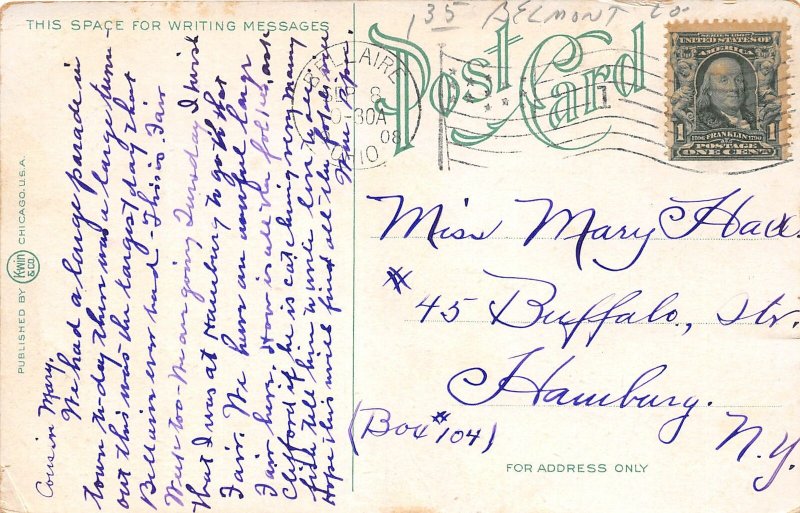 THIS SPACE FOR WRITING MESSAGES
Cousin Mary,
We had a large parade in
town to-day there was a large turn-
out this was the largest day that
Bellaire ever had - This is Fair
Week too - We are going Tuesday I wish
that I was at Hamburg to go to that
Fair. We have an awful large
Fair here. How is all the folks ask
Clifford if he is catching very many
fish tell him to write
Hope this will find all the folks well
PUBLISHED BY Kwin & Co. CHICAGO, U.S.A.
35 BELMONT CO-
Post Card
BELLAIRE
8
-30A
08
OHIO
1
SERIES 1902
UNITED STATES
OF AMERICA
1706 FRANKLIN 1790
POSTAGE
1 ONE CENT 1
Miss Mary
# 45 Buffalo, Str.
Hamburg.
(Box #104)
N.Y.
FOR ADDRESS ONLY